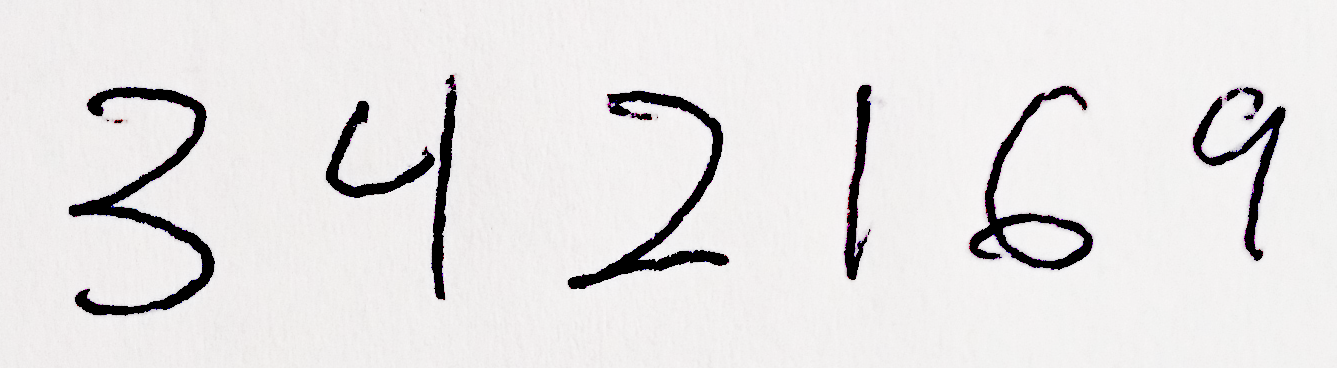 3 4 2 1 6 9